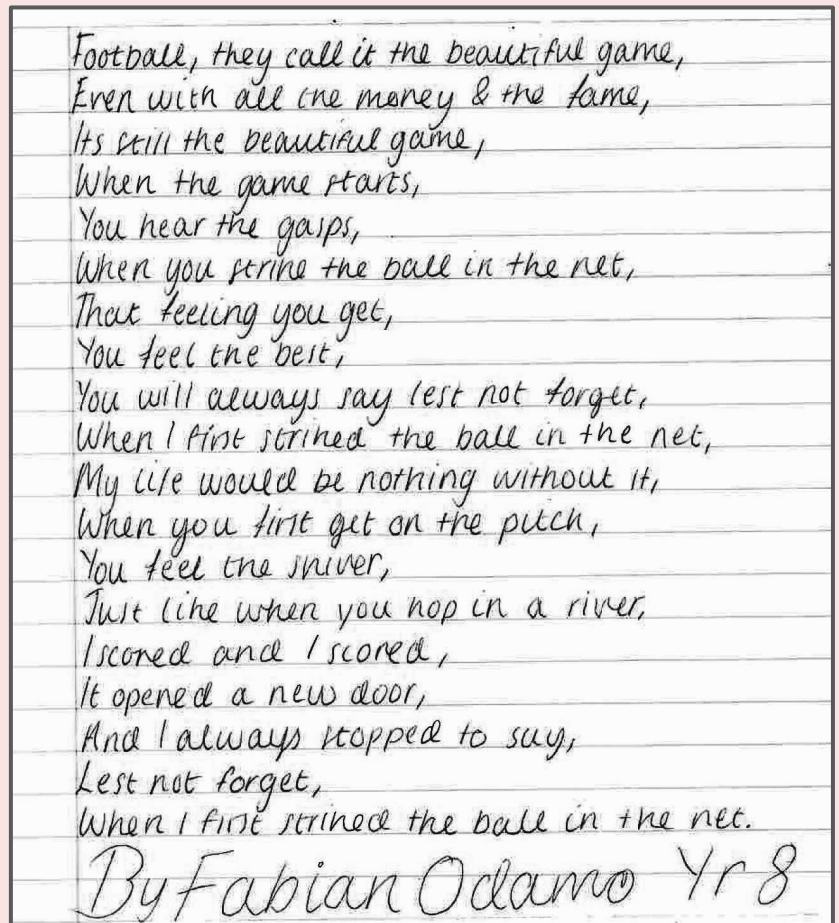 Football, they call it the beautiful game,
Even with all the money & the fame,
Its still the beautiful game,
When the game starts,
You hear the gasps,
When you strike the ball in the net,
That feeling you get,
You feel the best,
You will always say lest not forget,
When I first striked the ball in the net,
My life would be nothing without it,
When you first get on the pitch,
You feel the shiver,
Just like when you hop in a river,
I scored and I scored,
It opened a new door,
And I always stopped to say,
Lest not forget,
When I first striked the ball in the net.
By Fabian Odamo Yr 8